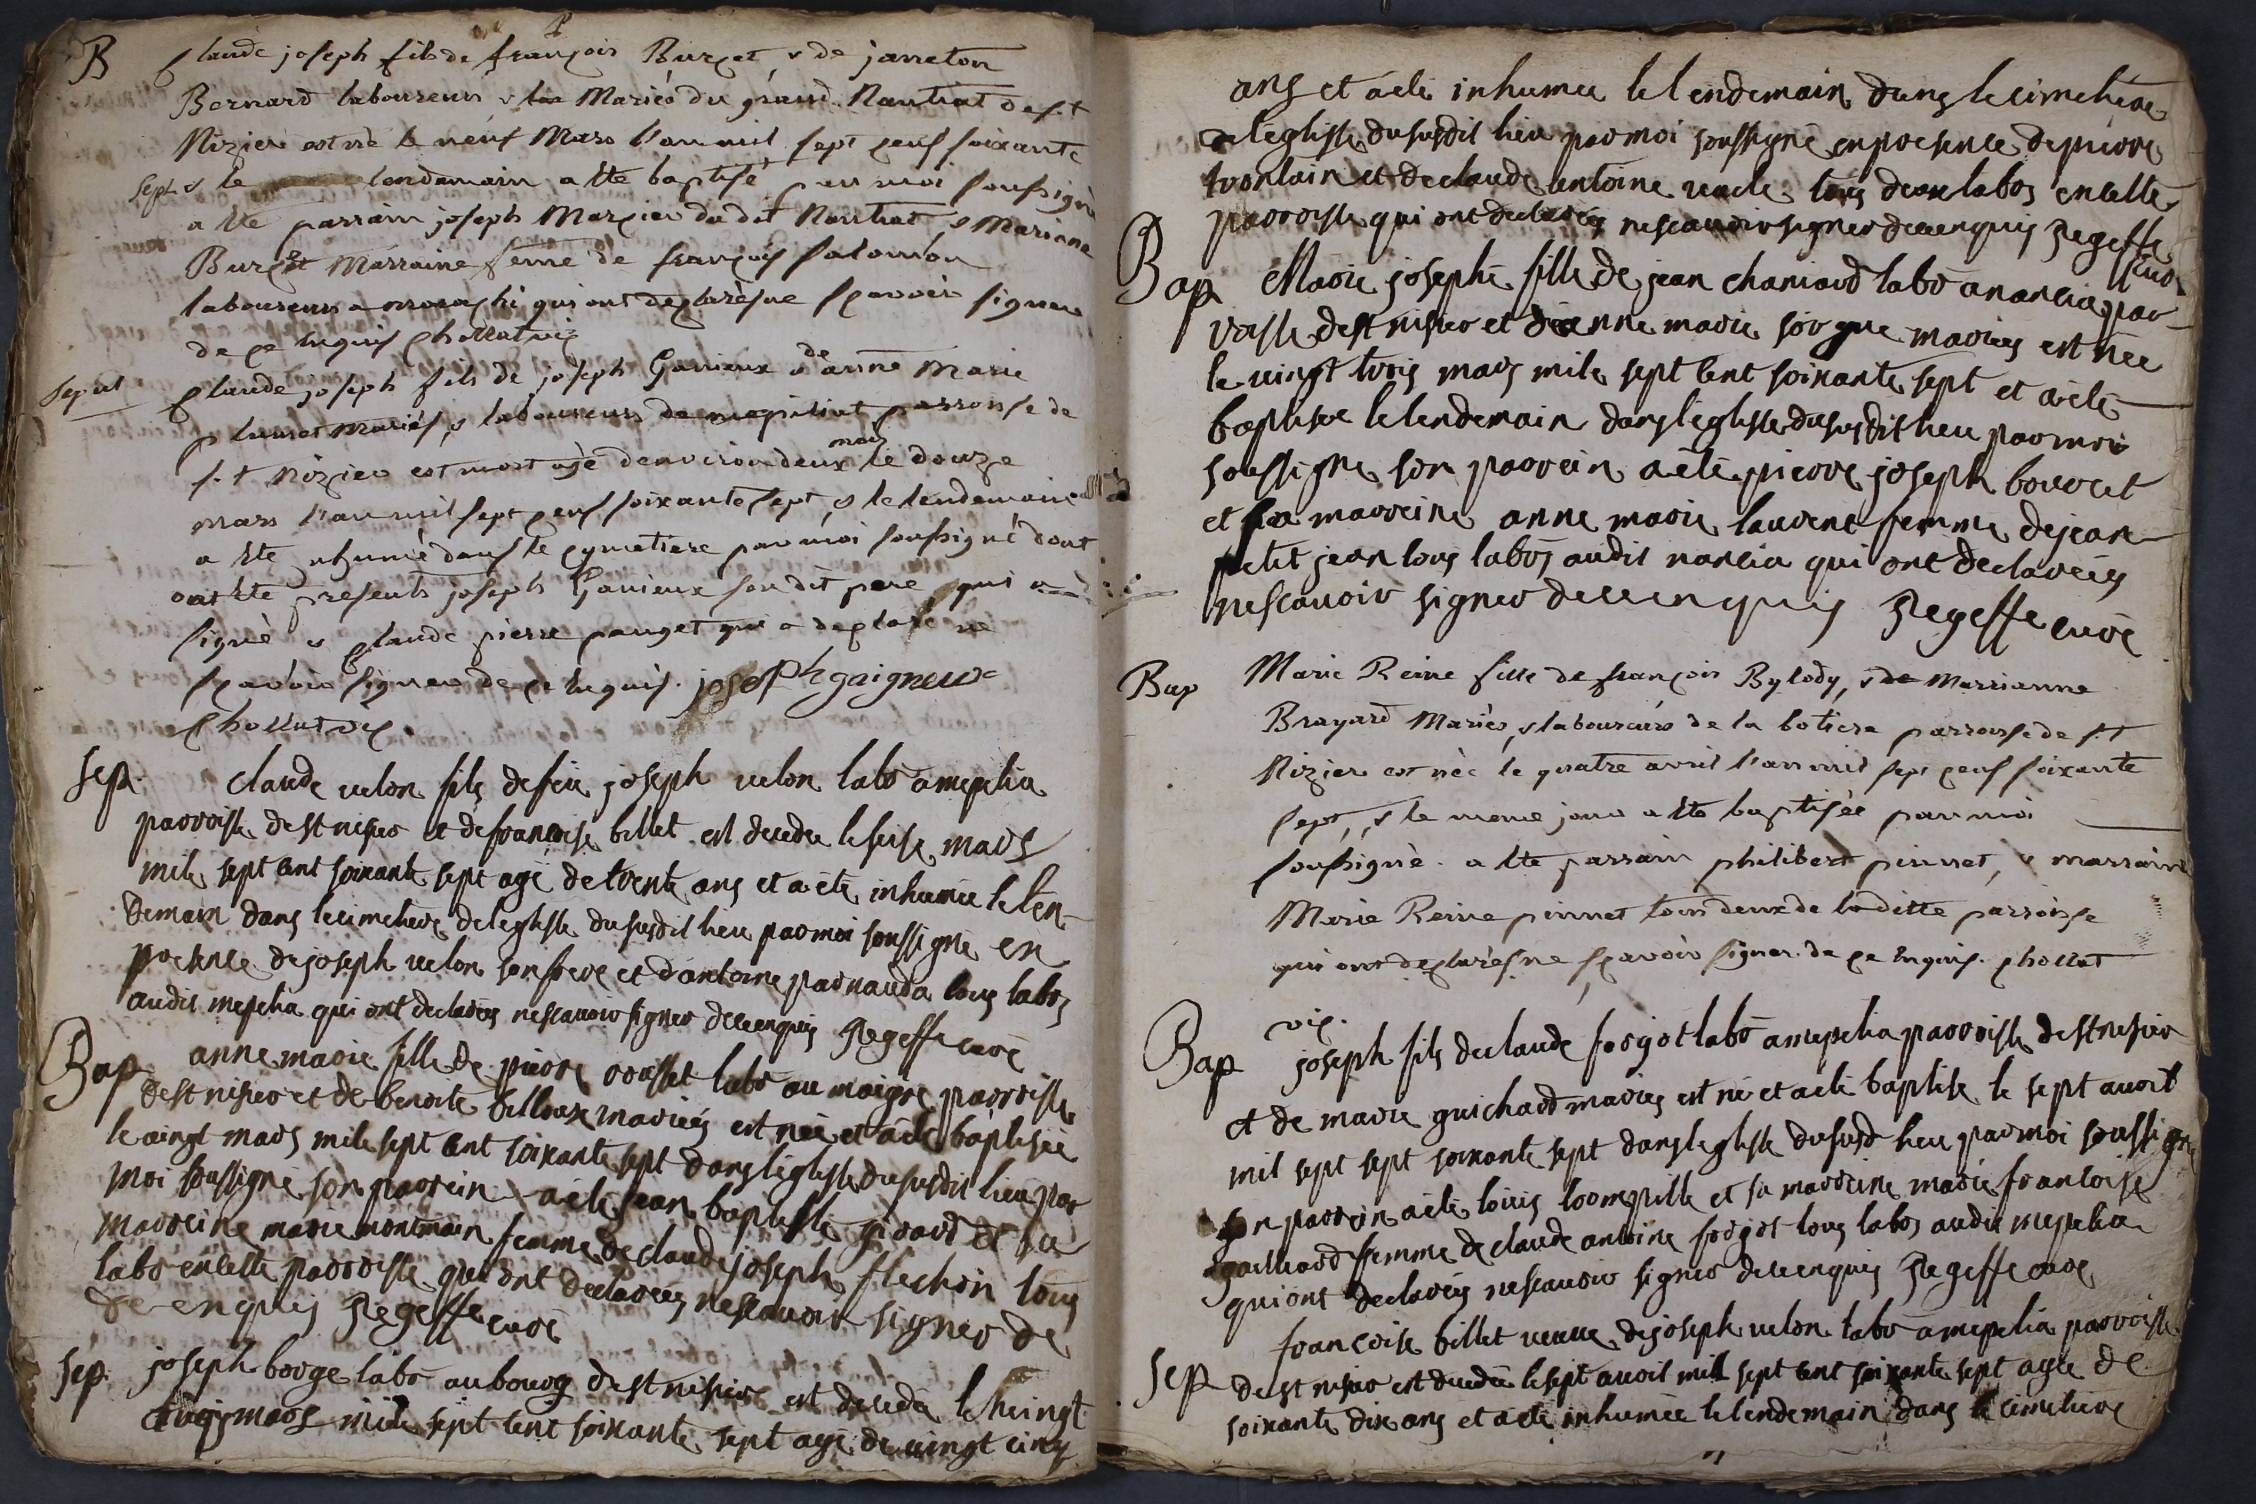 B Claude joseph fils de françois Burçet, & de janneton
Bernard laboureurs & Mariés du grand Nantrat de s.t
Nizier est né le neuf Mars l'an mil sept cens soixante
sept & le lendemain a ete baptisé par moi soussigné
a ete parrain joseph Marcier du dit Nantrat & Mariane
Burçet Marraine feme de françois Salomon
laboureurs qui ont declarés ne sçavoir signer
de ce enquis Chollat vic
Sepul Claude joseph fils de joseph Ganieux & de anne Marie
plumet mariés, & laboureurs de mepiliat parroisse de
s.t Nizier est mort agé d'environ deux mois le douze
mars l'an mil sept cens soixante sept, & le lendemain
a ete inhumé dans le cymetiere par moi soussigné dont
ont ete presents joseph Ganieux son dit pere qui a
signé & Claude pierre pauget qui a declaré ne
sçavoir signer de ce enquis. joseph gaigneux
Chollat vic.
Sep. Claude velon fils de feu joseph velon labr a mepelia
parroisse de st nisier et de francoise billet est decede le seise mars
mile sept cent soixante sept agé de trente ans et a été inhumée le len-
demain dans le cimetiere de leglisse du susdit lieu par moi soussigné en
presence de joseph velon son frere et d'antoine parnauda tous labrs
audit mepelia qui ont declarés ne scavoir signer de ce enquis Regeffe curé
Bap anne marie fille de pierre rousset labr au maigre parroisse
de st nisier et de benoite billoux mariés est née et a été baptisée
le vingt mars mile sept cent soixante sept dans léglisse du susdit lieu par
moi soussigné son parrein a été jean baptiste girard et sa
marreine marie montmain femme de claude joseph flechon tous
labr en cette parroisse qui ont declarés ne scavoir signer de
ce enquis Regeffe curé
Sep. joseph borge labr au bourg de st nisier est decedé le vingt
trois mars mile sept cent soixante sept agé de vingt cinq
ans et a été inhumée le lendemain dans le cimetiere
de léglisse du susdit lieu par moi soussigné en presence de pierre
tronlain et de claude antoine vacle tous deux labrs en cette
parroisse qui ont declarés ne scavoir signer de ce enquis Regeffe
curé
Bap Marie josephe fille de jean chaniard labr a nancia par-
roisse de st nisier et de anne marie sorgue mariés est née
le vingt trois mars mile sept cent soixante sept et a été
baptisée le lendemain dans léglisse du susdit lieu par moi
soussigné son parrein a été pierre joseph bourcet
et sa marreine anne marie laurent femme de jean
petit jean tous labrs audit nancia qui ont declarés
ne scavoir signer de ce enquis Regeffe curé
Bap Marie Reine fille de françois Bylody, & de Marrianne
Brayard Mariés, & laboureurs de la botiere parroisse de s.t
Nizier est née le quatre avril l'an mil sept cens soixante
sept, & le meme jour a ete baptisée par moi
soussigné. a ete parrain philibert pinnet, & marraine
Marie Reine pinnet tous deux de laditte parroisse
qui ont declarés ne sçavoir signer. de ce enquis. Chollat
vic.
Bap joseph fils de claude forgot labr a mepelia parroisse de st nisier
et de marie guichard mariés est né et a été baptise le sept avril
mil sept sept soixante sept dans leglisse du susd lieu par moi soussigné
son parrein a été et sa marreine marie francoise
gailleard femme de claude antoine forgot tous labrs audit mepelia
qui ont declarés ne scavoir signer de ce enquis Regeffe curé
francoise billet veuve de joseph velon labr a mepelia parroisse
Sep de st nisier est decedée le sept avril mil sept cent soixante sept agée de
soixante dix ans et a été inhumée le lendemain dans le cimetiere